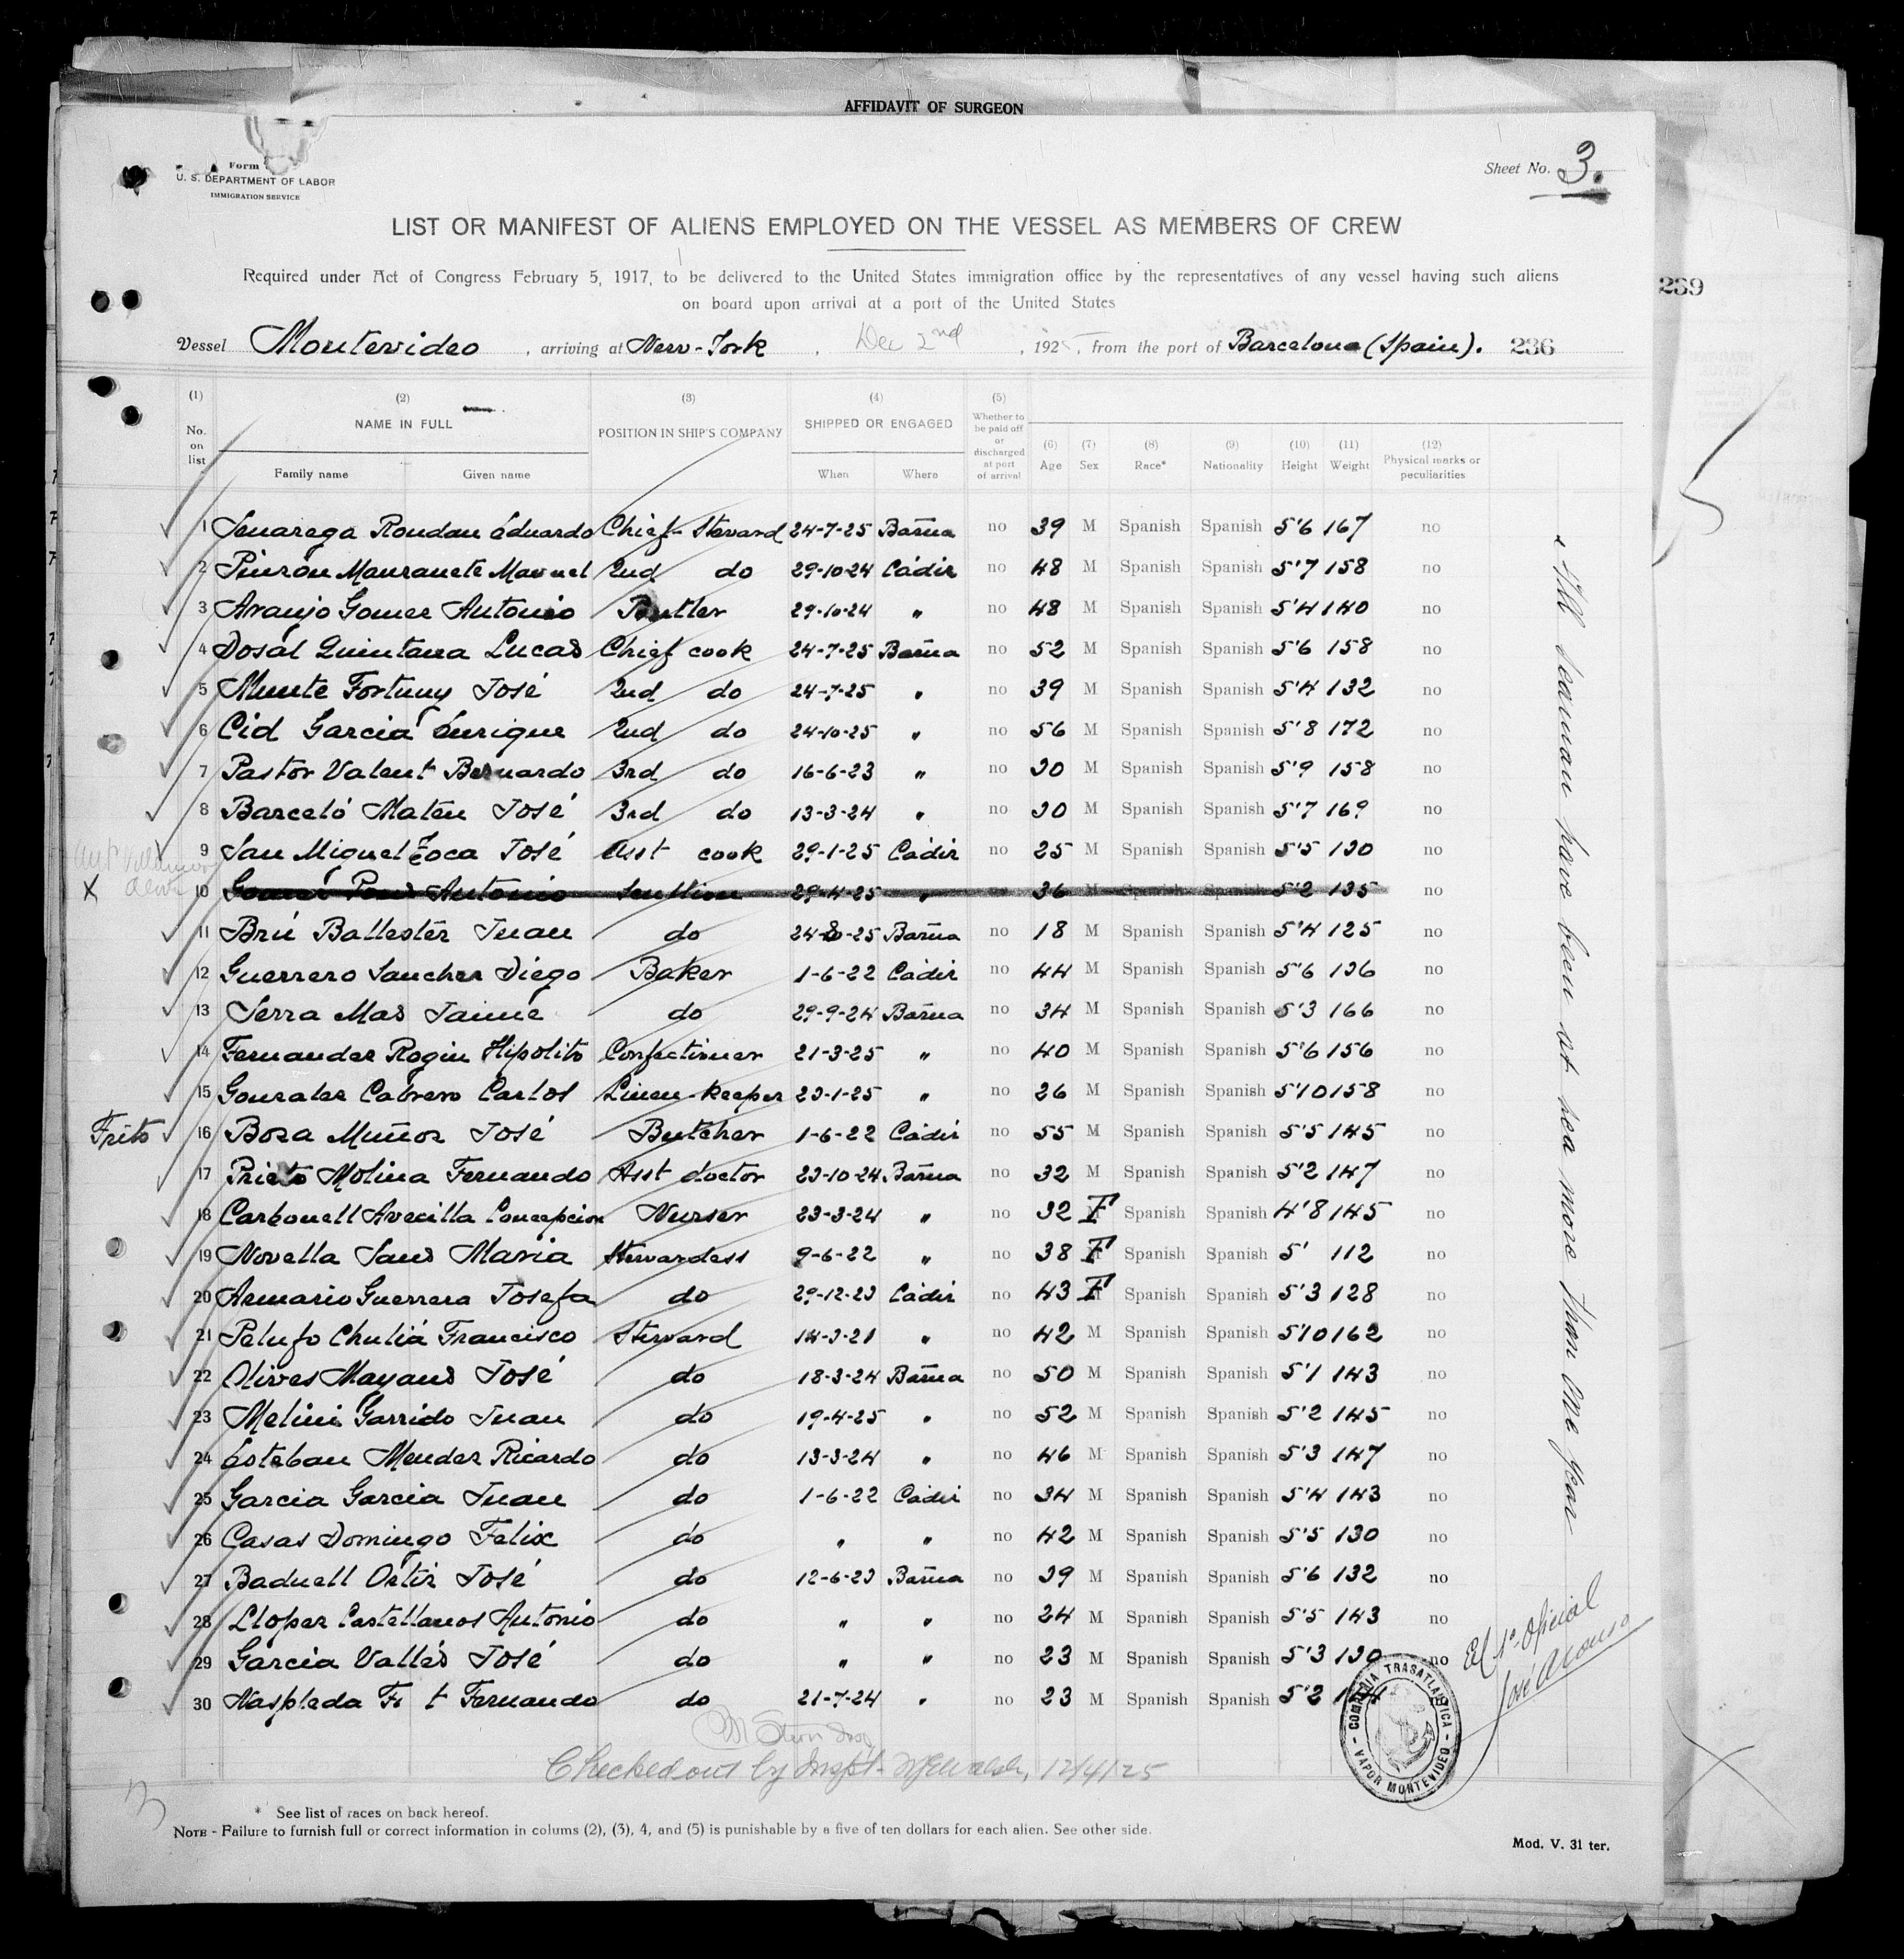 AFFIDAVIT OF SURGEON
Form
U. S. DEPARTMENT OF LABOR
IMMIGRATION SERVICE
Sheet No. 3.
LIST OR MANIFEST OF ALIENS EMPLOYED ON THE VESSEL AS MEMBERS OF CREW
Required under Act of Congress February 5, 1917, to be delivered to the United States immigration office by the representatives of any vessel having such aliens
on board upon arrival at a port of the United States
239
Vessel Montevideo, arriving at New-York, Dec 2nd, 1925, from the port of Barcelona (Spain). 236
(1) (2) (3) (4) (5) (6) (7) (8) (9) (10) (11) (12)
No. on list NAME IN FULL POSITION IN SHIP'S COMPANY SHIPPED OR ENGAGED Whether to be paid off or discharged at port of arrival Age Sex Race* Nationality Height Weight Physical marks or peculiarities
Family name Given name When Where
1 Roudan Eduardo Chief-Stevard 24-7-25 Barna no 39 M Spanish Spanish 5'6 167 no
2 Manuel 2nd do 29-10-24 Cádiz no 48 M Spanish Spanish 5'7 158 no
3 Araujo Gomez Antonio Butler 29-10-24 " no 48 M Spanish Spanish 5'4 140 no
4 Dosál Quintana Lucas Chief cook 24-7-25 Barna no 52 M Spanish Spanish 5'6 158 no
5 Munte Fortuny José 2nd do 24-7-25 " no 39 M Spanish Spanish 5'4 132 no
6 Cid Garcia Enrique 2nd do 24-10-25 " no 56 M Spanish Spanish 5'8 172 no
7 Pastor Valent Bernardo 3rd do 16-6-23 " no 30 M Spanish Spanish 5'9 158 no
8 Barceló Mateu José 3rd do 13-3-24 " no 30 M Spanish Spanish 5'7 169 no
9 San Miguel José Asst cook 29-1-25 Cádiz no 25 M Spanish Spanish 5'5 130 no
X 10 Antonio 29-4-25 " no 36 M Spanish Spanish 5'2 135 no
11 Brú Ballester Juan do 24-8-25 Barna no 18 M Spanish Spanish 5'4 125 no
12 Guerrero Sanchez Diego Baker 1-6-22 Cádiz no 44 M Spanish Spanish 5'6 136 no
13 Serra Mas Jaime do 29-9-24 Barna no 34 M Spanish Spanish 5'3 166 no
14 Fernandez Rogin Hipolito Confectioner 21-3-25 " no 40 M Spanish Spanish 5'6 156 no
15 Gonzalez Cabrero Carlos Linen-keeper 23-1-25 " no 26 M Spanish Spanish 5'10 158 no
16 Boza Muñoz José Butcher 1-6-22 Cádiz no 55 M Spanish Spanish 5'5 145 no
17 Prieto Molina Fernando Asst doctor 23-10-24 Barna no 32 M Spanish Spanish 5'2 147 no
18 Carbonell Avecilla Concepcion Nurser 23-3-24 " no 32 F Spanish Spanish 4'8 145 no
19 Novella Sans Maria Stevardess 9-6-22 " no 38 F Spanish Spanish 5' 112 no
20 Armario Guerrera Josefa do 29-12-23 Cádiz no 43 F Spanish Spanish 5'3 128 no
21 Pelufo Chuliá Francisco Stevard 14-3-21 " no 42 M Spanish Spanish 5'10 162 no
22 Olives Mayans José do 18-3-24 Barna no 50 M Spanish Spanish 5'1 143 no
23 Melini Garrido Juan do 19-4-25 " no 52 M Spanish Spanish 5'2 145 no
24 Esteban Mendez Ricardo do 13-3-24 " no 46 M Spanish Spanish 5'3 147 no
25 Garcia Garcia Juan do 1-6-22 Cádiz no 34 M Spanish Spanish 5'4 143 no
26 Casas Domingo Felix do " " no 42 M Spanish Spanish 5'5 130 no
27 Baduell Ortiz José do 12-6-23 Barna no 39 M Spanish Spanish 5'6 132 no
28 Llopez Castellanos Antonio do " " no 24 M Spanish Spanish 5'5 143 no
29 Garcia Vallés José do " " no 23 M Spanish Spanish 5'3 130 no
30 Naspleda Fernando do 21-7-24 " no 23 M Spanish Spanish 5'2 no
All seaman have been at sea more than one year
El 1º Oficial
José Alonso
COMPAÑIA TRASATLANTICA - VAPOR MONTEVIDEO -
Checked out by Inspt. 12/4/25
* See list of races on back hereof.
NOTE - Failure to furnish full or correct information in colums (2), (3), 4, and (5) is punishable by a five of ten dollars for each alien. See other side.
Mod. V. 31 ter.